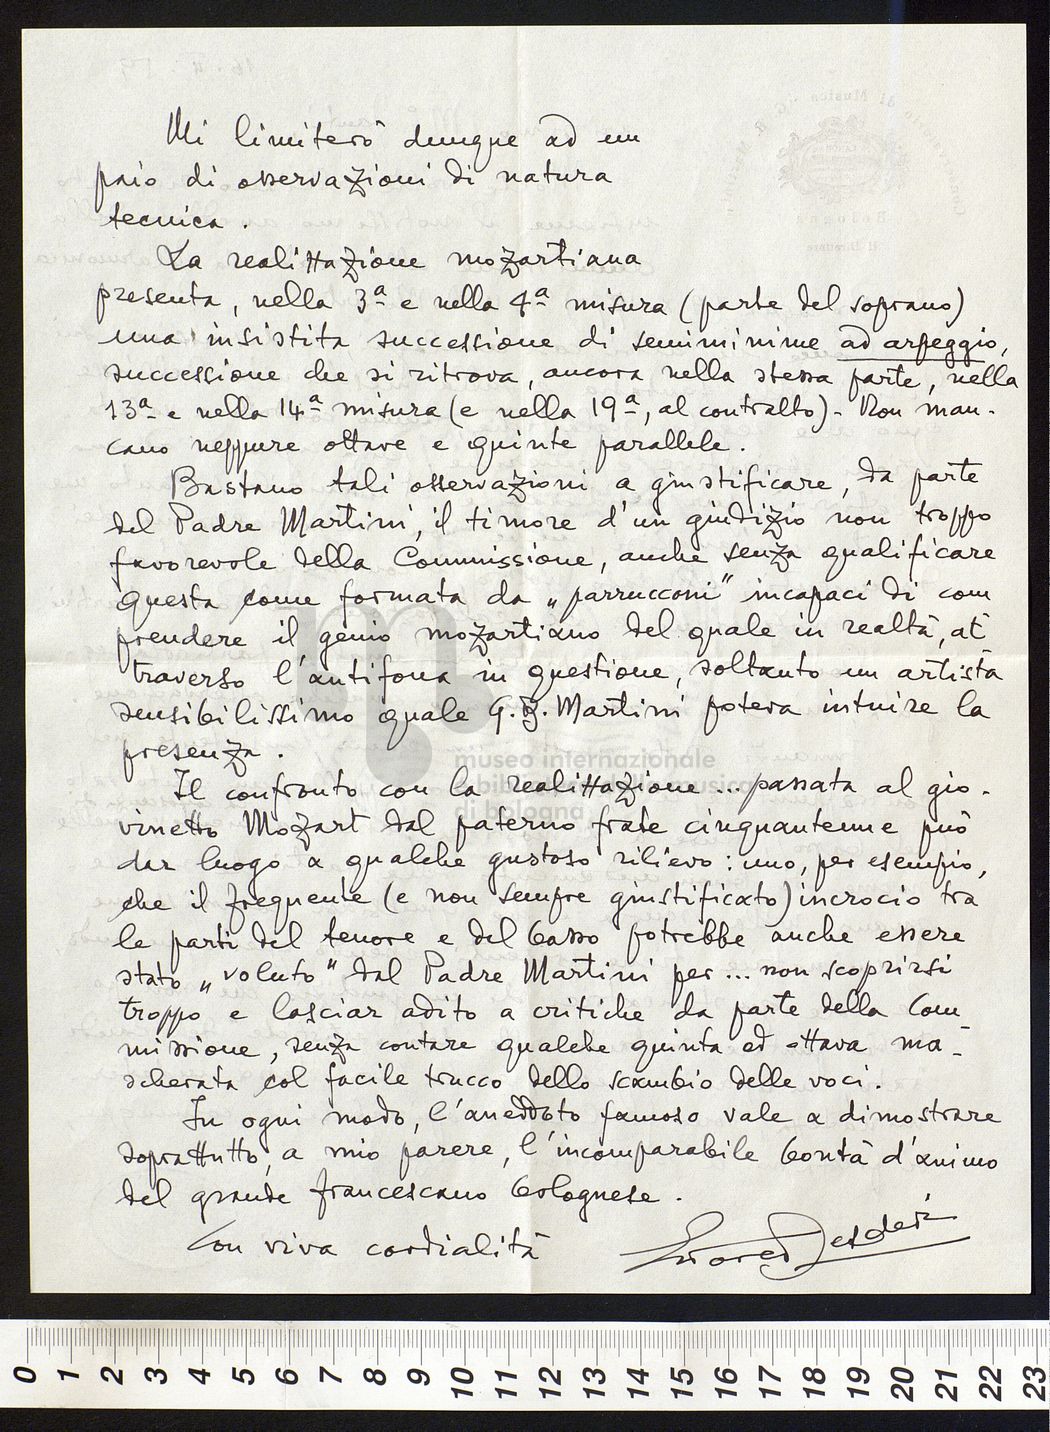 Mi limiterò dunque ad un
paio di osservazioni di natura
tecnica.
La realizzazione mozartiana
presenta, nella 3ª e nella 4ª misura (parte del soprano)
una insistita successione di semiminime ad arpeggio,
successione che si ritrova, ancora nella stessa parte, nella
13ª e nella 14ª misura (e nella 19ª, al contralto). Non man-
cano neppure ottave e quinte parallele.
Bastano tali osservazioni a giustificare, da parte
del Padre Martini, il timore d'un giudizio non troppo
favorevole della Commissione, anche senza qualificare
questa come formata da „parrucconi" incapaci di com
prendere il genio mozartiano del quale in realtà, at
traverso l'antifona in questione, soltanto un artista
sensibilissimo quale G.B. Martini poteva intuire la
presenza.
Il confronto con la realizzazione... passata al gio-
vinetto Mozart dal paterno frate cinquantenne può
dar luogo a qualche gustoso rilievo: uno, per esempio,
che il frequente (e non sempre giustificato) incrocio tra
le parti del tenore e del basso potrebbe anche essere
stato „voluto" dal Padre Martini per... non scoprirsi
troppo e lasciar adito a critiche da parte della Com_
missione, senza contare qualche quinta ed ottava ma_
scherata col facile trucco dello scambio delle voci.
In ogni modo, l'aneddoto famoso vale a dimostrare
soprattutto, a mio parere, l'incomparabile bontà d'animo
del grande francescano bolognese.
Con viva cordialità
Ettore Desderi
museo internazionale
e biblioteca della musica
di bologna
0 1 2 3 4 5 6 7 8 9 10 11 12 13 14 15 16 17 18 19 20 21 22 23